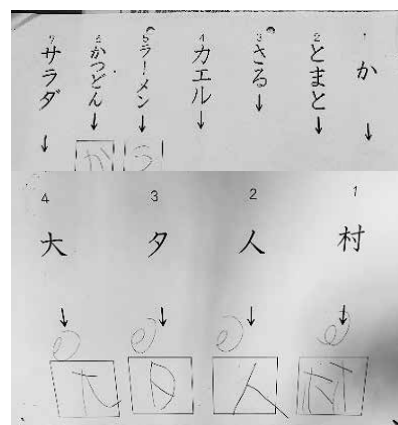 1 か
2 とまと
3 さる
4 カエル
5 ラーメン
6 かつどん
か
7 サラダ
1 村
村
2 人
人
3 夕
4 大
大